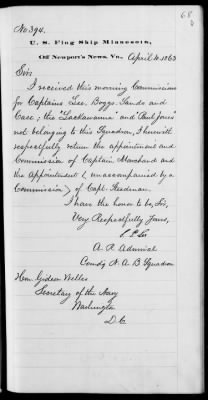 68
No 394.
U. S. Flag Ship Minnesota,
Off Newport's News, Va., April 10. 1863
Sir:
I received this morning Commissions
for Captains Lee, Boggs, Sands and
Case; the "Lackawanna" and "Paul Jones"
not belonging to this Squadron, I herewith
respectfully return the appointment and
Commission of Captain Marchand and
the Appointment (unaccompanied by a
Commission) of Capt. Steedman.
I have the honor to be, Sir,
Very Respectfully Yours,
S. P. Lee
A. R. Admiral
Comdg N. A. B. Squadron
Hon. Gideon Welles
Secretary of the Navy
Washington
D. C.